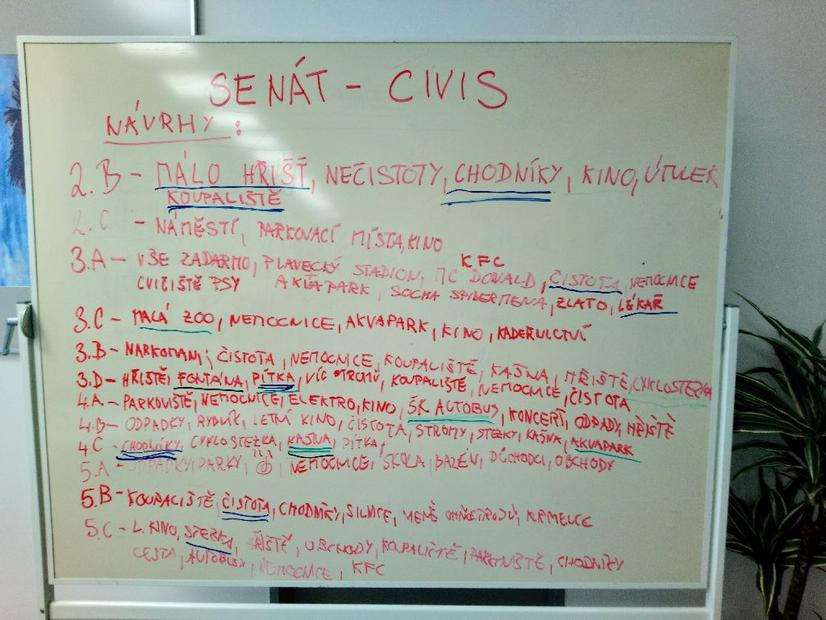 SENÁT - CIVIS
NÁVRHY :
2.B - MÁLO HŘIŠŤ, NEČISTOTY, CHODNÍKY, KINO, ÚTULEK
KOUPALIŠTĚ
2.C - NÁMĚSTÍ, PARKOVACÍ MÍSTA, KINO
KFC
3.A - VŠE ZADARMO, PLAVECKÝ STADION, MC DONALD, ČISTOTA, NEMOCNICE
CVIČIŠTĚ PSY AKVAPARK, SOCHA SPIDERMENA, ZLATO, LÉKAŘ
3.C - MALÁ ZOO, NEMOCNICE, AKVAPARK, KINO, KADEŘNICTVÍ
3.B - NARKOMANI, ČISTOTA, NEMOCNICE, KOUPALIŠTĚ, KAŠNA, HŘIŠTĚ, CYKLOSTEZKA
3.D - HŘIŠTĚ, FONTÁNA, PÍTKA, VÍC STROMŮ, KOUPALIŠTĚ, NEMOCNICE, ČISTOTA
4.A - PARKOVIŠTĚ, NEMOCNICE, ELEKTRO, KINO, ŠK. AUTOBUS, KONCERT, ODPADY, HŘIŠTĚ
4.B - ODPADKY, RYBNÍK, LETNÍ KINO, ČISTOTA, STROMY, STEZKY, KAŠNA, AKVAPARK
4.C - CHODNÍKY, CYKLOSTEZKA, KAŠNA, PÍTKA,
5.A - ODPADKY, PARKY, NEMOCNICE, ŠKOLA, BAZÉN, DŮCHODCI, OBCHODY
5.B - KOUPALIŠTĚ, ČISTOTA, CHODNÍKY, SILNICE, MÉNĚ OHŇOSTROJŮ, KRMELCE
5.C - L. KINO, STEZKA, HŘIŠTĚ, OBCHODY, KOUPALIŠTĚ, PARKOVIŠTĚ, CHODNÍKY
CESTA, AUTOBUSY, NEMOCNICE, KFC